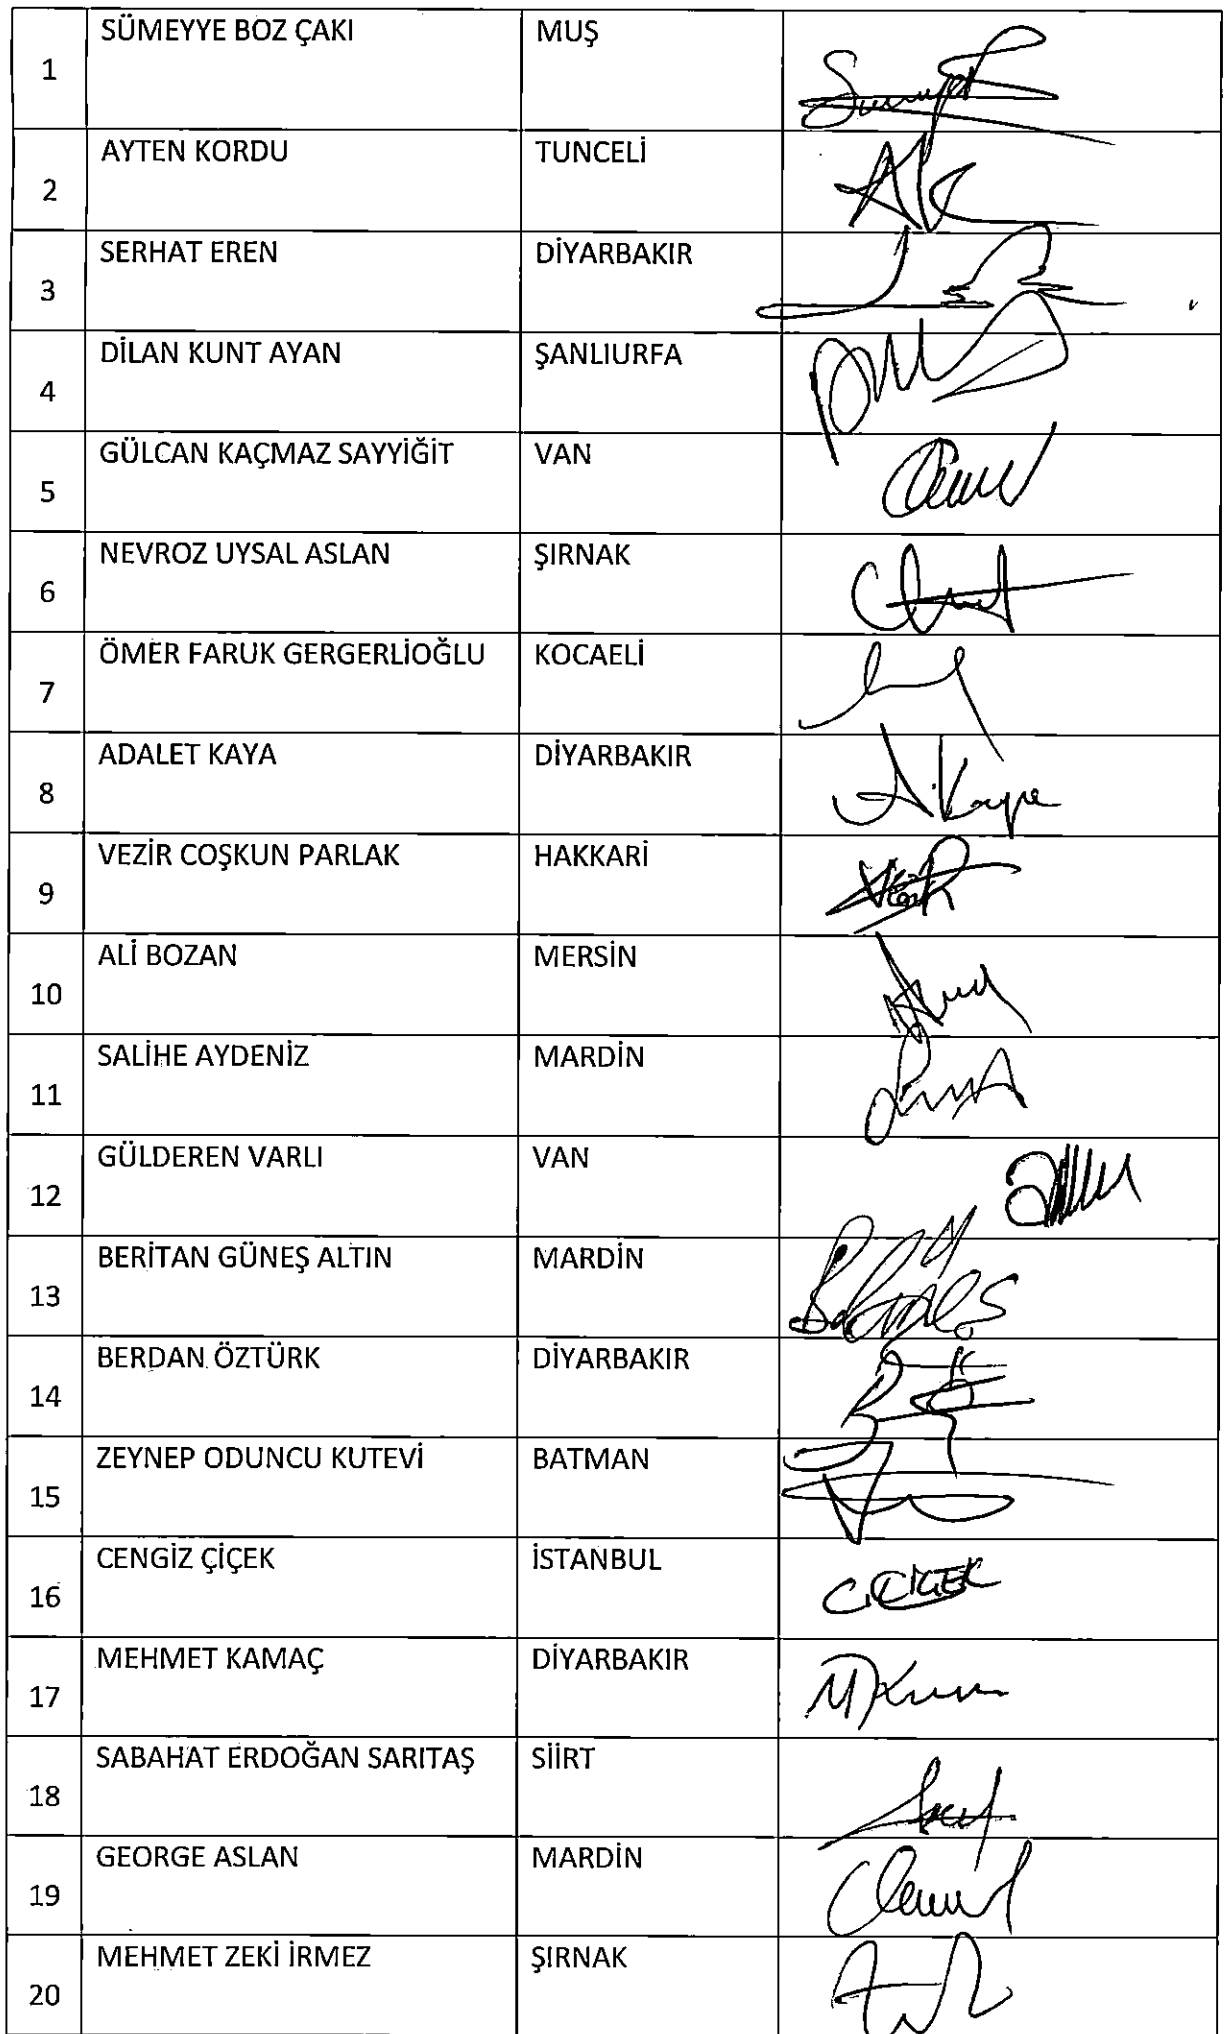 1 SÜMEYYE BOZ ÇAKI MUŞ
2 AYTEN KORDU TUNCELİ
3 SERHAT EREN DİYARBAKIR
4 DİLAN KUNT AYAN ŞANLIURFA
5 GÜLCAN KAÇMAZ SAYYİĞİT VAN
6 NEVROZ UYSAL ASLAN ŞIRNAK
7 ÖMER FARUK GERGERLİOĞLU KOCAELİ
8 ADALET KAYA DİYARBAKIR A.Kaya
9 VEZİR COŞKUN PARLAK HAKKARİ
10 ALİ BOZAN MERSİN
11 SALİHE AYDENİZ MARDİN
12 GÜLDEREN VARLI VAN
13 BERİTAN GÜNEŞ ALTIN MARDİN
14 BERDAN ÖZTÜRK DİYARBAKIR
15 ZEYNEP ODUNCU KUTEVİ BATMAN
16 CENGİZ ÇİÇEK İSTANBUL C.ÇİÇEK
17 MEHMET KAMAÇ DİYARBAKIR
18 SABAHAT ERDOĞAN SARITAŞ SİİRT
19 GEORGE ASLAN MARDİN
20 MEHMET ZEKİ İRMEZ ŞIRNAK